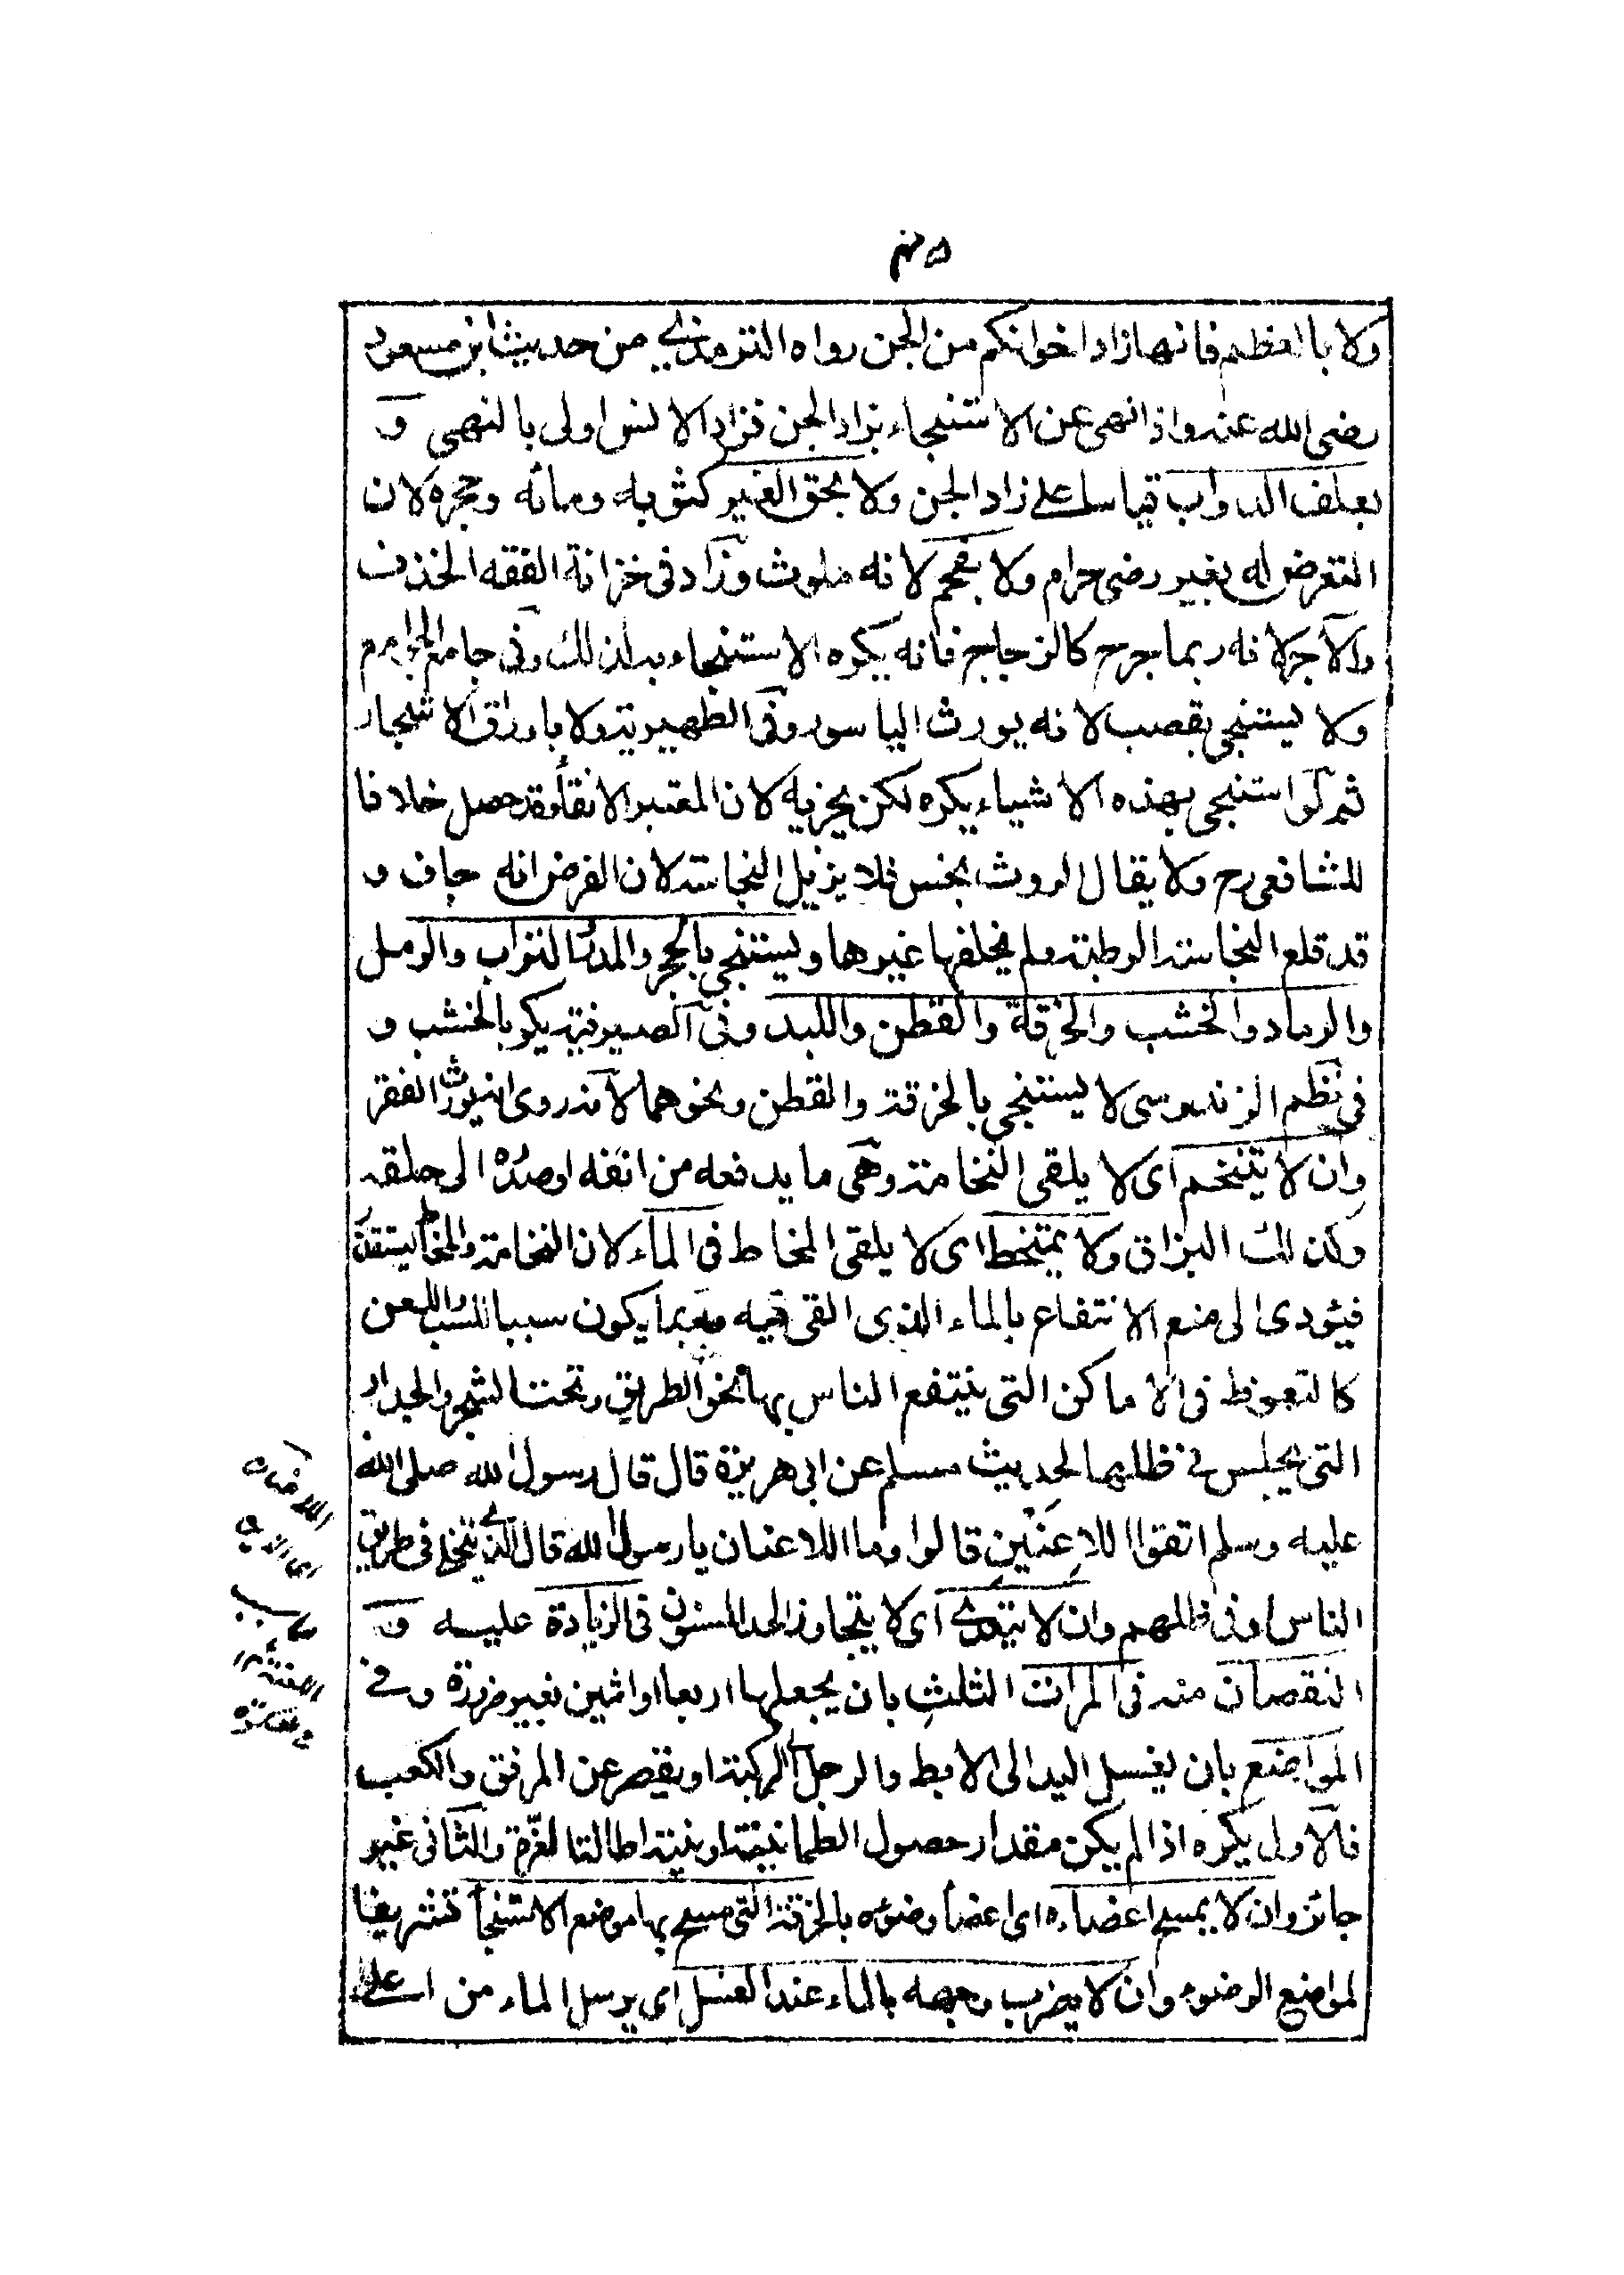 ولا بالعظم فانها زاد اخوانكم من الجن رواه الترمذي من حديث ابن مسعود
رضى الله عنه واذا نهى عن الاستنجاء بزاد الجن فزاد الانس اولى بالنهى و
بعلف الدواب قياسا على زاد الجن ولا بحق الغير كثوبه ومائه وحجره لان
التعرض له بغير رضى حرام ولا بفحم لانه ملوث وزاد فى خزانة الفقه الخذف
والآجر لانه ربما جرح كالزجاج فانه يكره الاستنجاء بذلك وفى جامع الجوامع
ولا يستنجى بقصب لانه يورث الباسور وفى الظهيرية ولا باوراق الاشجار
ثم لو استنجى بهذه الاشياء يكره لكن يجزيه لان المعتبر الانقاء وقد حصل خلافا
للشافعى رح ولا يقال الروث نجس فلا يزيل النجاسة لان الفرض انه جاف و
قد قلع النجاسة الرطبة ولم يخلفها غيرها ويستنجى بالحجر والمدر التراب والرمل
والرماد والخشب والخرقة والقطن واللبد وفى الصيرفية يكره بالخشب و
فى نظم الزندوسى لا يستنجى بالخرقة والقطن ونحوهما لانه روى انه يورث الفقر
وان لا يتنخم اى لا يلقى النخامة وهى ما يدفعه من انفه او صدره الى حلقه
وكذلك البزاق ولا يمتخط اى لا يلقى المخاط فى الماء لان النخامة والمخاط يستقذر
فيئودى الى منع الانتفاع بالماء الذى القى فيه وربما يكون سببا للسب واللعن
كالتغوط فى الاماكن التى ينتفع الناس بها نحو الطريق وتحت الشجر والجدار
التى يجلس فى ظلها لحديث مسلم عن ابى هريرة قال قال رسول الله صلى الله
عليه وسلم اتقوا اللاعنين قالوا وما اللاعنان يا رسول الله قال الذى يتخلى فى طريق
الناس او فى ظلهم وان لا يتعدى اى لا يتجاوز الحد المسنون فى الزيادة عليه و
النقصان منه فى المرات الثلث بان يجعلها اربعا او اثنين بغير ضرورة وفى
المواضع بان يغسل اليد الى الابط والرجل الى الركبة او يقصر عن المرفق والكعب
فالاول يكره اذا لم يكن مقدار حصول الطمانينة او بنية اطالة الغرة والثانى غير
جائز وان لا يمسح اعضاءه اى اعضاء وضوئه بالخرقة التى مسح بها موضع الاستنجاء تشريفا
لمواضع الوضوء وان لا يضرب وجهه بالماء عند الغسل اى يرسل الماء من اعلى